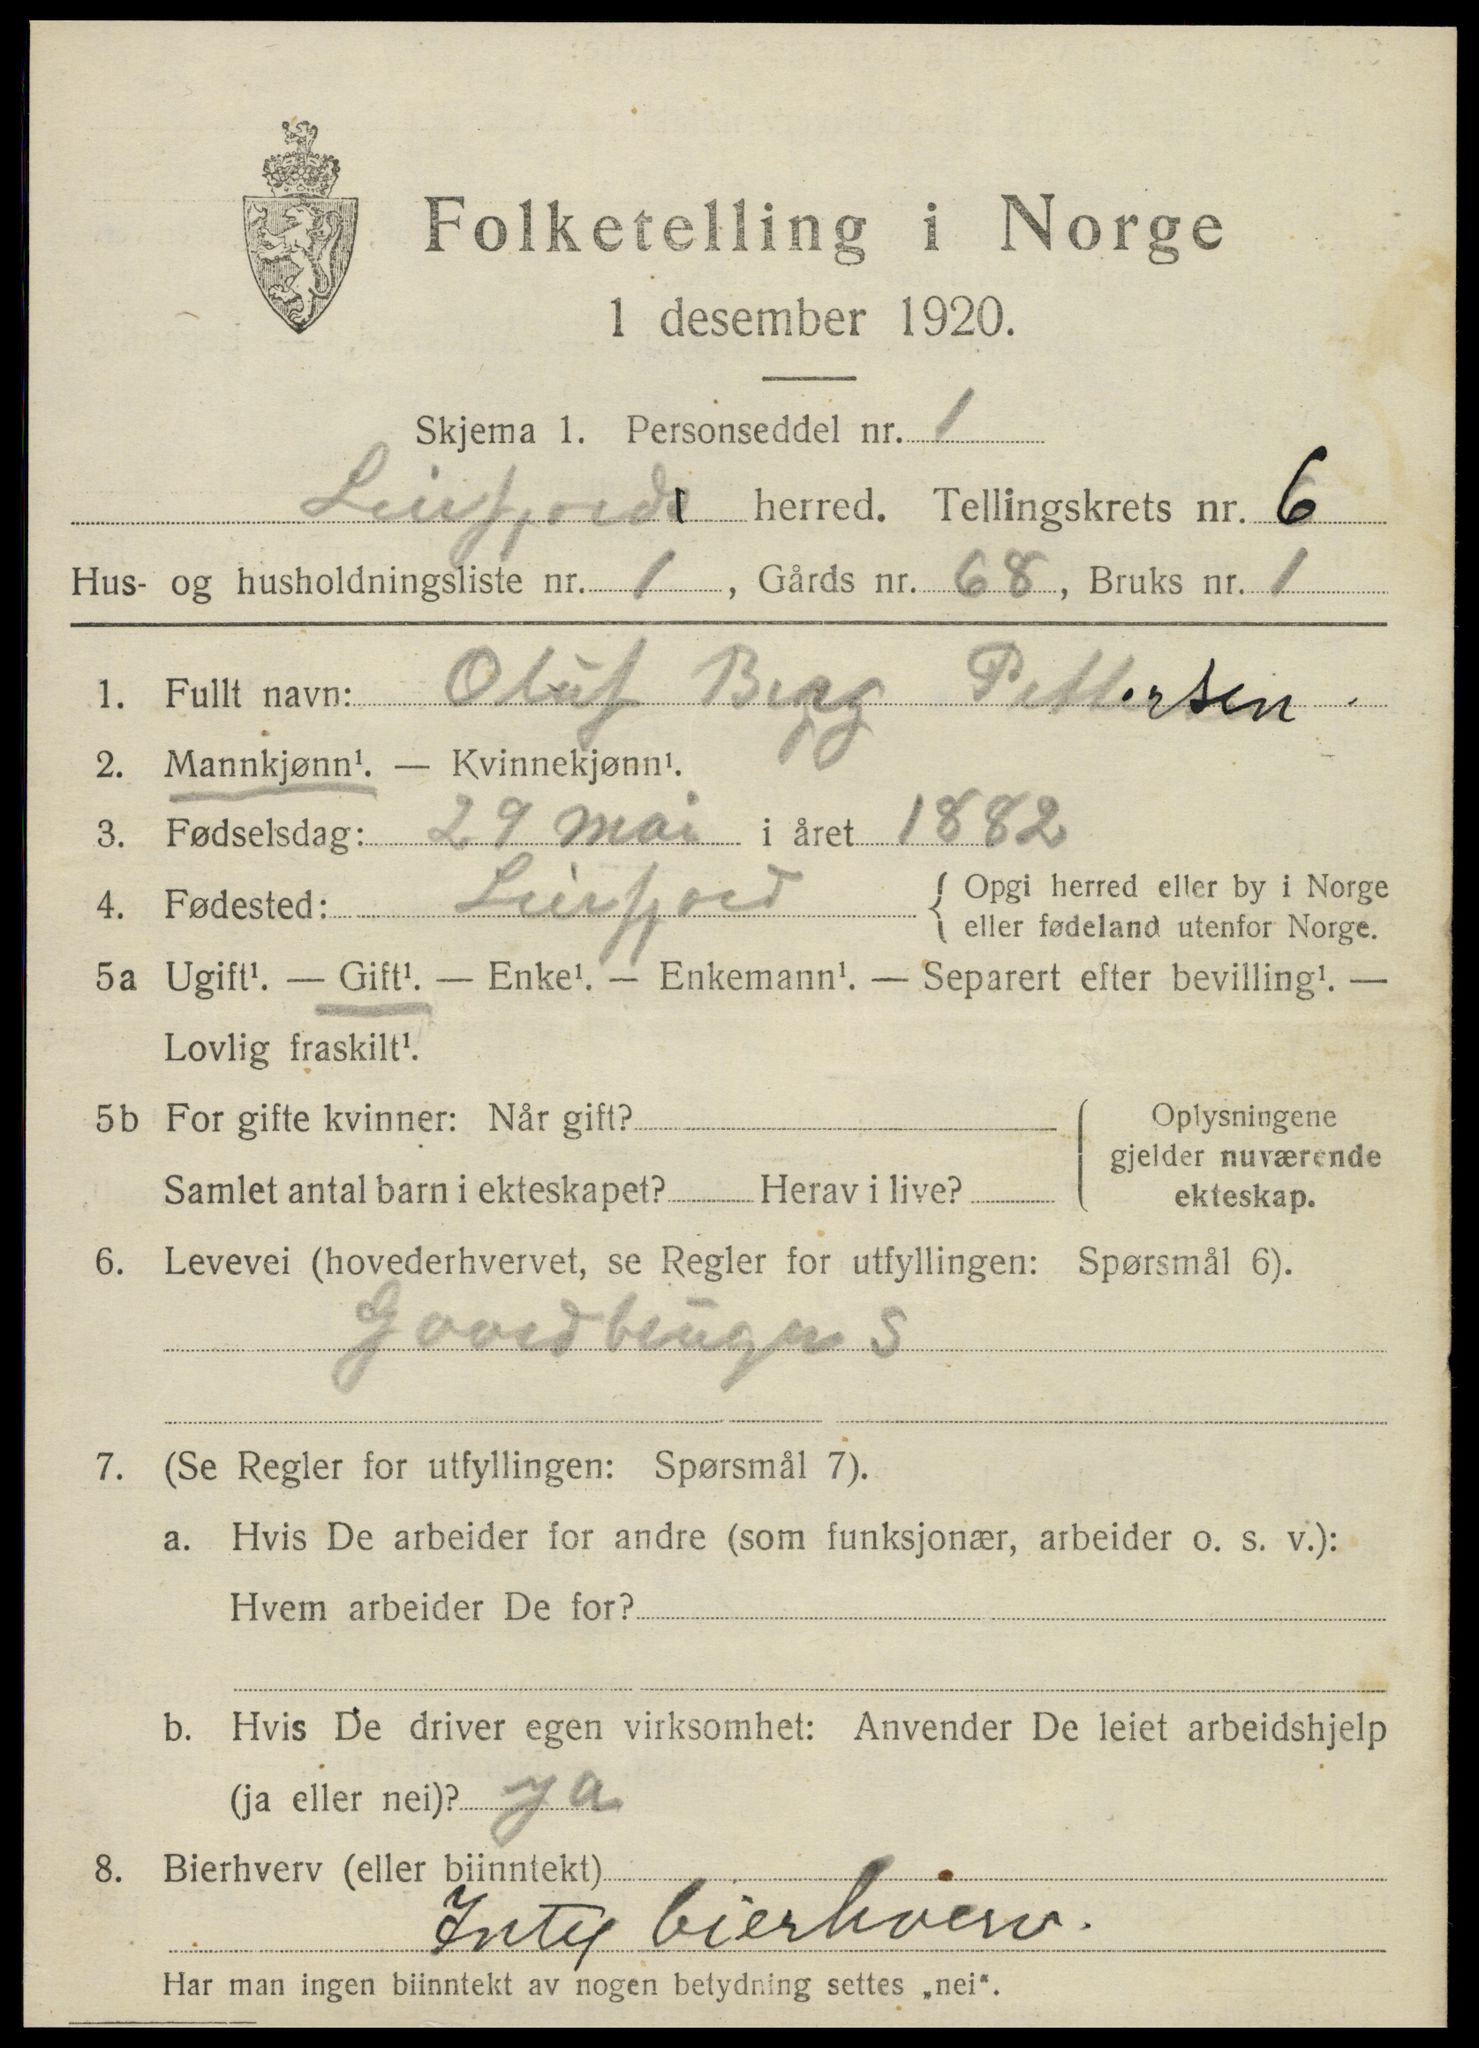 Folketelling i Norge
1 desember 1920.
Skjema 1. Personseddel nr. 1
Leirfjord herred. Tellingskrets nr. 6
Hus- og husholdningsliste nr. 1, Gårds nr. 68, Bruks nr. 1
1. Fullt navn: Oluf Berg Pettersen
2. Mannkjønn¹. — Kvinnekjønn¹.
3. Fødselsdag: 29 mai i året 1882
4. Fødested: Leirfjord { Opgi herred eller by i Norge
eller fødeland utenfor Norge.
5a Ugift¹. — Gift¹. — Enke¹. — Enkemann¹. — Separert efter bevilling¹. —
Lovlig fraskilt¹.
5b For gifte kvinner: Når gift?
Samlet antal barn i ekteskapet? Herav i live?
{ Oplysningene
gjelder nuværende
ekteskap.
6. Levevei (hovederhvervet, se Regler for utfyllingen: Spørsmål 6).
Gaardbruger S
7. (Se Regler for utfyllingen: Spørsmål 7).
a. Hvis De arbeider for andre (som funksjonær, arbeider o. s. v.):
Hvem arbeider De for?
b. Hvis De driver egen virksomhet: Anvender De leiet arbeidshjelp
(ja eller nei)? ja
8. Bierhverv (eller biinntekt)
Intet bierhverv.
Har man ingen biinntekt av nogen betydning settes „nei".